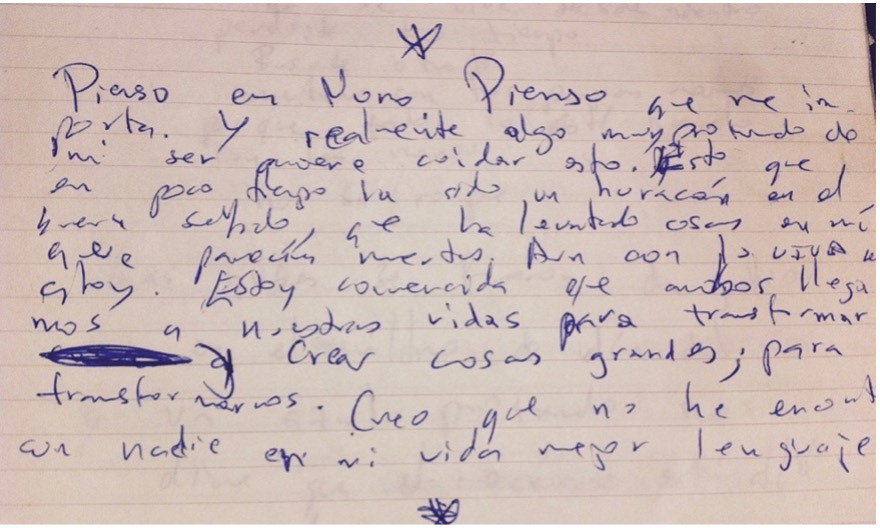 Pienso en Nono Pienso que me in-
porta. Y realmente algo muy profundo de
mi ser quiere cuidar esto. Esto que
en poco tiempo ha sido un huracán en el
buen sentido, que ha levantado cosas en mí
que parecían muertas. Aun con lo viva q
estoy. Estoy convencida que ambos llega
mos a nuestras vidas para transformar
y Crear cosas grandes; para
transformarnos. Creo que no he
con nadie en mi vida mejor lenguaje